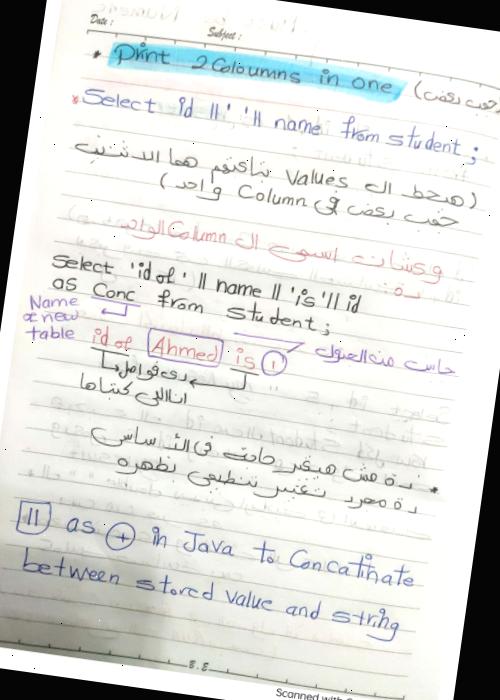 Date:
Subject:
* Print 2 Coloumns in one (جنب بعض)
* Select id ||' '|| name from student;
(هيحط ال values بتاعتهم هما الاتنين
جنب بعض في Column واحد)
وعشان اسمي ال Column الواحد
ده:
Select 'id of' || name || 'is' || id
as Conc from student;
Name
a new
table
id of Ahmed is 1
دى فواصل
انا اللى كتباها
* ده مش هيغير حاجة فى
ده مجرد تغيير
|| as + in Java to Concatinate
between stored value and string
Scanned with